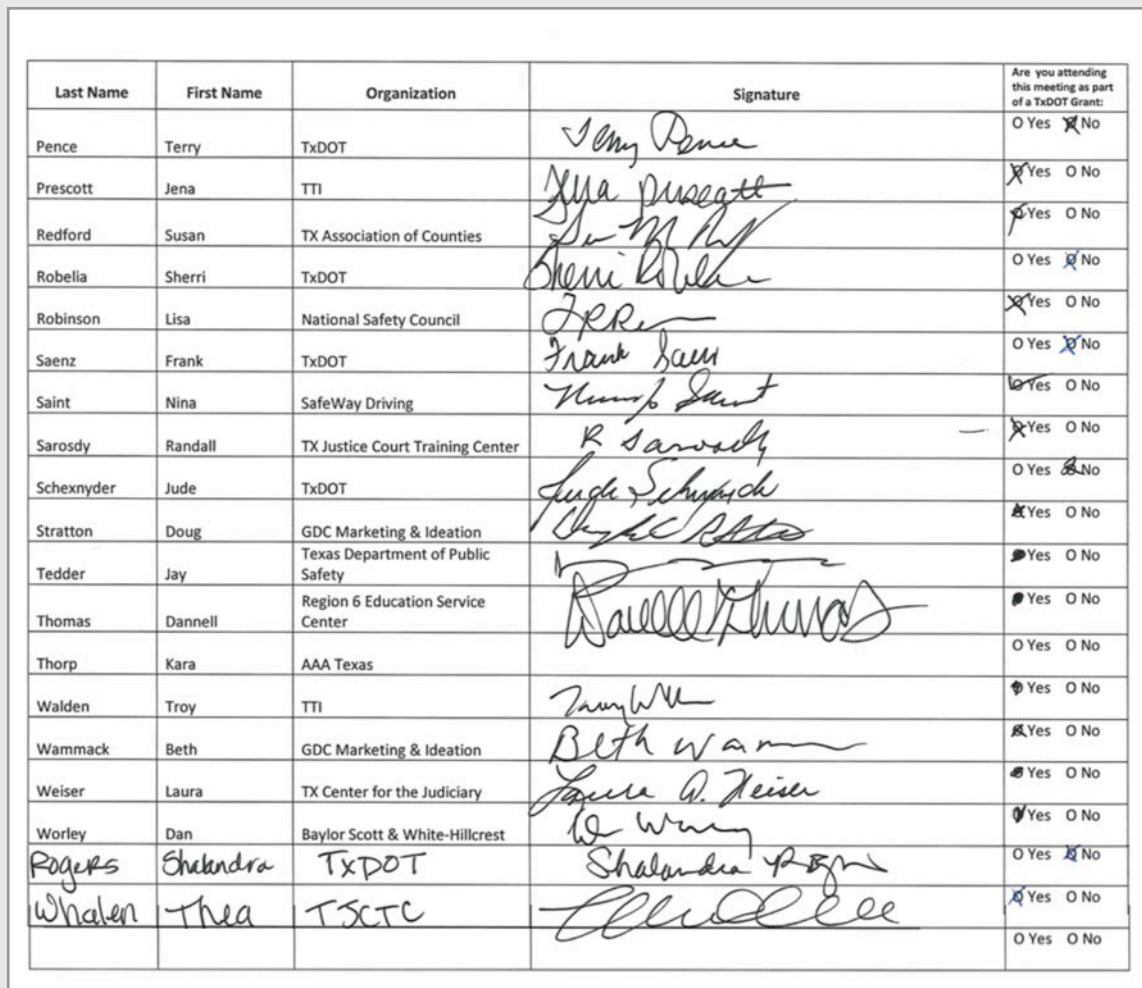 Last Name First Name Organization Signature Are you attending this meeting as part of a TxDOT Grant:
Pence Terry TxDOT Terry Pence O Yes O No
Prescott Jena TTI Jena Prescott O Yes O No
Redford Susan TX Association of Counties O Yes O No
Robelia Sherri TxDOT Sherri Robelia O Yes O No
Robinson Lisa National Safety Council O Yes O No
Saenz Frank TxDOT Frank Saenz O Yes O No
Saint Nina SafeWay Driving Saint O Yes O No
Sarosdy Randall TX Justice Court Training Center R Sarosdy O Yes O No
Schexnyder Jude TxDOT Jude O Yes O No
Stratton Doug GDC Marketing & Ideation O Yes O No
Tedder Jay Texas Department of Public Safety O Yes O No
Thomas Dannell Region 6 Education Service Center Danell Thomas O Yes O No
Thorp Kara AAA Texas O Yes O No
Walden Troy TTI O Yes O No
Wammack Beth GDC Marketing & Ideation Beth O Yes O No
Weiser Laura TX Center for the Judiciary Laura A. Weiser O Yes O No
Worley Dan Baylor Scott & White-Hillcrest O Yes O No
Rogers Shalandra TxDOT Shalandra Rogers O Yes O No
Whalen Thea TJCTC O Yes O No
O Yes O No